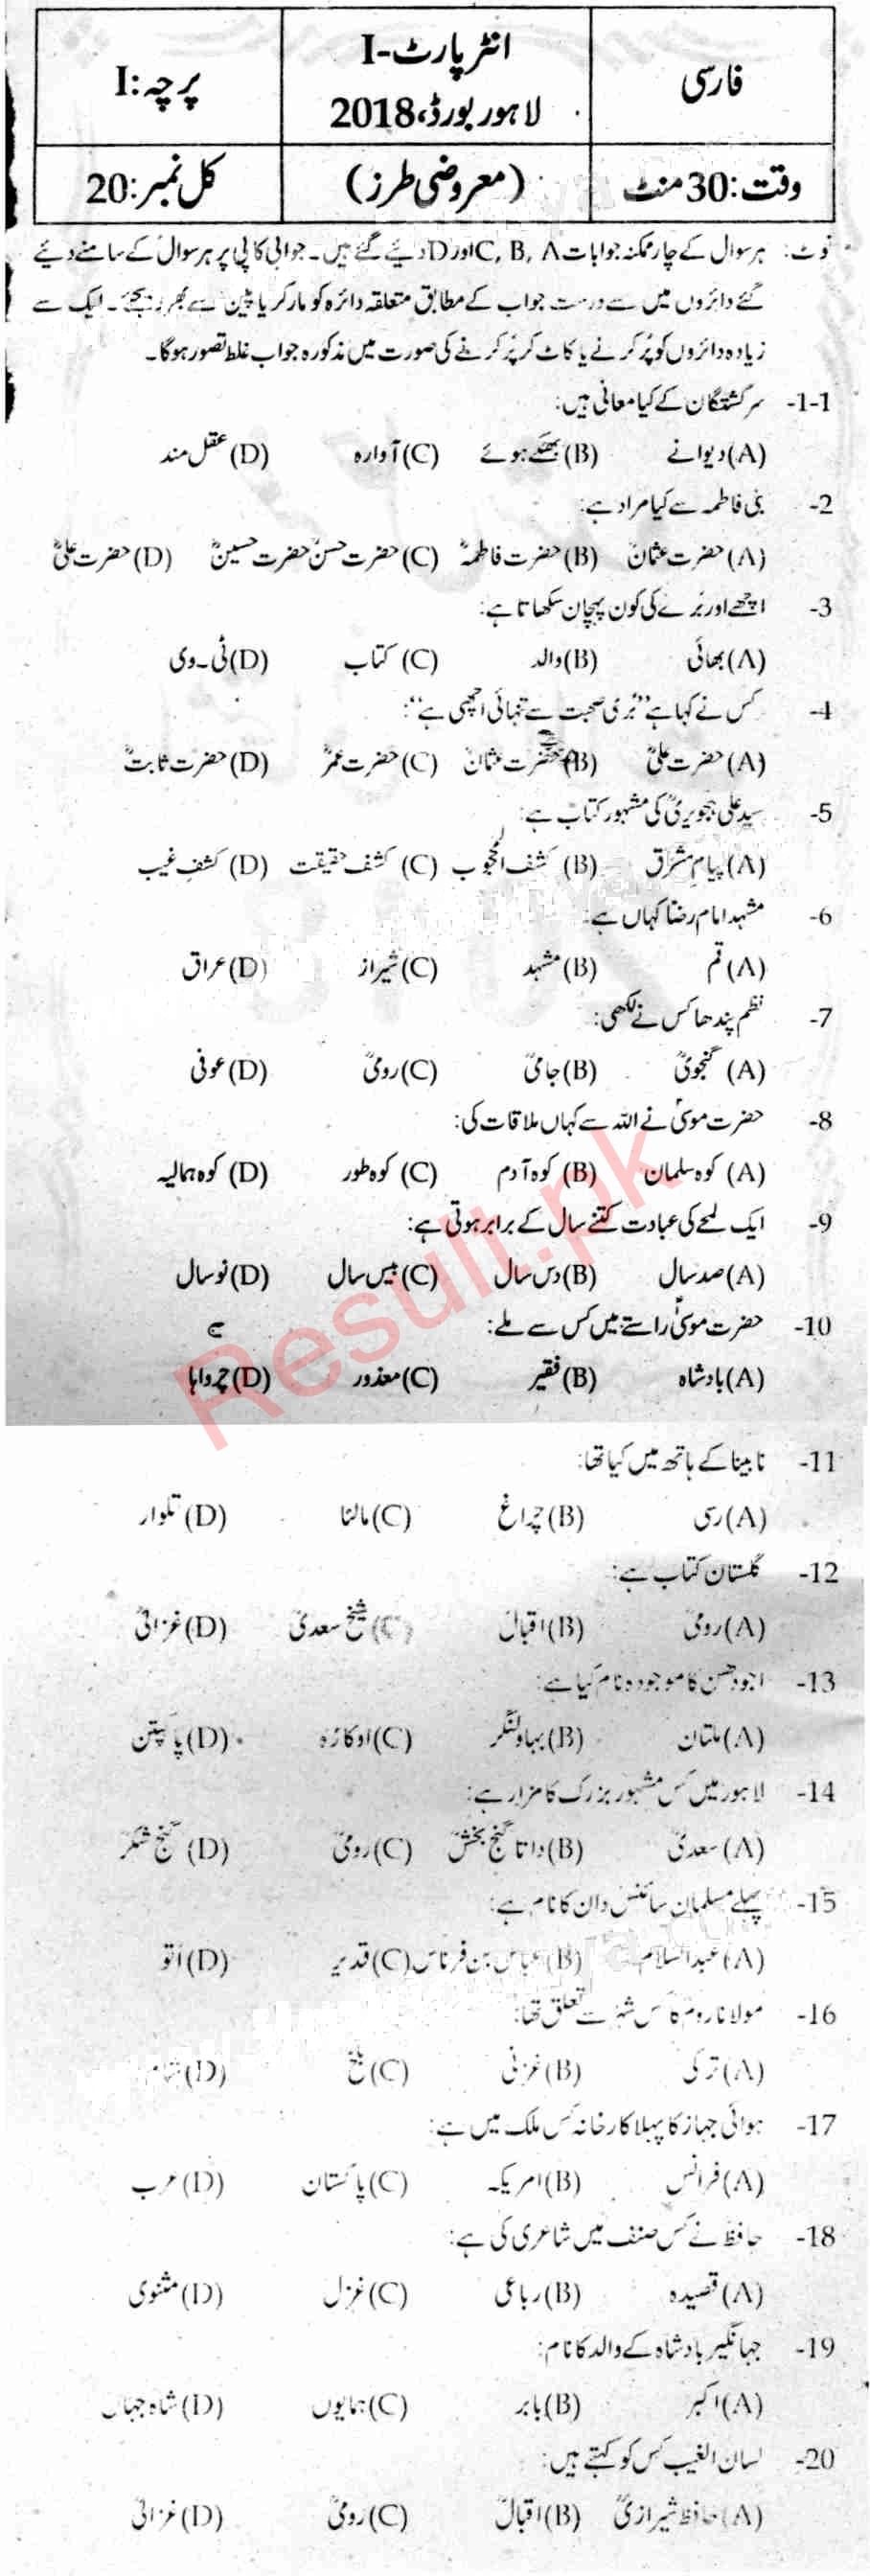 فارسی
انٹر پارٹ-I
لاہور بورڈ، 2018
پرچہ: I
وقت: 30 منٹ
(معروضی طرز)
کل نمبر: 20
نوٹ: ہر سوال کے چار ممکنہ جوابات A، B، C اور D دیئے گئے ہیں۔ جوابی کاپی پر ہر سوال کے سامنے دیئے
گئے دائروں میں سے درست جواب کے مطابق متعلقہ دائرہ کو مارکر یا پین سے بھر دیجئے۔ ایک سے
زیادہ دائروں کو پُر کرنے یا کاٹ کر پُر کرنے کی صورت میں مذکورہ جواب غلط تصور ہوگا۔
1-1- سرگشتگان کے کیا معانی ہیں:
(A) دیوانے (B) بھٹکے ہوئے (C) آوارہ (D) عقل مند
2- بنی فاطمہ سے کیا مراد ہے:
(A) حضرت عثمانؓ (B) حضرت فاطمہؓ (C) حضرت حسنؓ حضرت حسینؓ (D) حضرت علیؓ
3- اچھے اور بُرے کی کون پہچان سکھاتا ہے:
(A) بھائی (B) والد (C) کتاب (D) ٹی۔وی
4- کس نے کہا ہے ”بُری صحبت سے تنہائی اچھی ہے“:
(A) حضرت علیؓ (B) حضرت عثمانؓ (C) حضرت عمرؓ (D) حضرت ثابتؓ
5- سید علی ہجویریؒ کی مشہور کتاب ہے:
(A) پیامِ مشرق (B) کشف المحجوب (C) کشف حقیقت (D) کشفِ غیب
6- مشہد امام رضا کہاں ہے:
(A) قم (B) مشہد (C) شیراز (D) عراق
7- نظم پندھا کس نے لکھی:
(A) گنجویؒ (B) جامیؒ (C) رومیؒ (D) عوفی
8- حضرت موسیٰؑ نے اللہ سے کہاں ملاقات کی:
(A) کوہ سلمان (B) کوہ آدم (C) کوہ طور (D) کوہ ہمالیہ
9- ایک لمحے کی عبادت کتنے سال کے برابر ہوتی ہے:
(A) صد سال (B) دس سال (C) بیس سال (D) نو سال
10- حضرت موسیٰؑ راستے میں کس سے ملے:
(A) بادشاہ (B) فقیر (C) معذور (D) چرواہا
11- نابینا کے ہاتھ میں کیا تھا:
(A) رسی (B) چراغ (C) مالٹا (D) تلوار
12- گلستان کتاب ہے:
(A) رومیؒ (B) اقبالؒ (C) شیخ سعدیؒ (D) غزالیؒ
13- اجودھن کا موجودہ نام کیا ہے:
(A) ملتان (B) بہاولنگر (C) اوکاڑہ (D) پاکپتن
14- لاہور میں کس مشہور بزرگ کا مزار ہے:
(A) سعدیؒ (B) داتا گنج بخشؒ (C) رومیؒ (D) گنج شکرؒ
15- پہلے مسلمان سائنس دان کا نام ہے:
(A) عبدالسلام (B) عباس بن فرناس (C) قدیر (D) اتو
16- مولانا روم کا کس شہر سے تعلق تھا:
(A) ترکی (B) غزنی (C) بلخ (D) شام
17- ہوائی جہاز کا پہلا کارخانہ کس ملک میں ہے:
(A) فرانس (B) امریکہ (C) پاکستان (D) عرب
18- حافظ نے کس صنف میں شاعری کی ہے:
(A) قصیدہ (B) رباعی (C) غزل (D) مثنوی
19- جہانگیر بادشاہ کے والد کا نام:
(A) اکبر (B) بابر (C) ہمایوں (D) شاہ جہاں
20- لسان الغیب کس کو کہتے ہیں:
(A) حافظ شیرازیؒ (B) اقبالؒ (C) رومیؒ (D) غزالیؒ
Result.pk